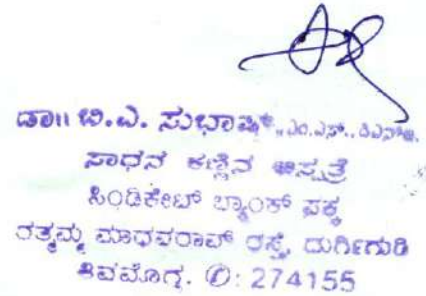 ಡಾ।। ಬಿ.ಎ. ಸುಭಾಷ್, ಎಂ.ಎಸ್., ಡಿಎನ್‌ಬಿ.
ಸಾಧನ ಕಣ್ಣಿನ ಆಸ್ಪತ್ರೆ
ಸಿಂಡಿಕೇಟ್ ಬ್ಯಾಂಕ್ ಪಕ್ಕ
ರತ್ನಮ್ಮ ಮಾಧವರಾವ್ ರಸ್ತೆ, ದುರ್ಗಿಗುಡಿ
ಶಿವಮೊಗ್ಗ. ✆: 274155